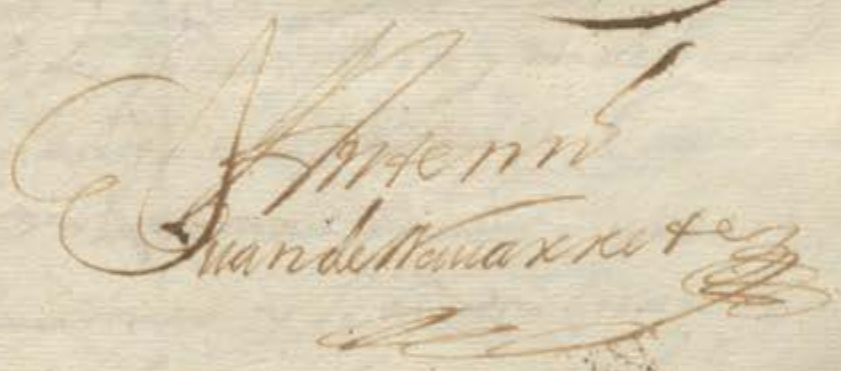 Ante mí
Juan de Nauarrete